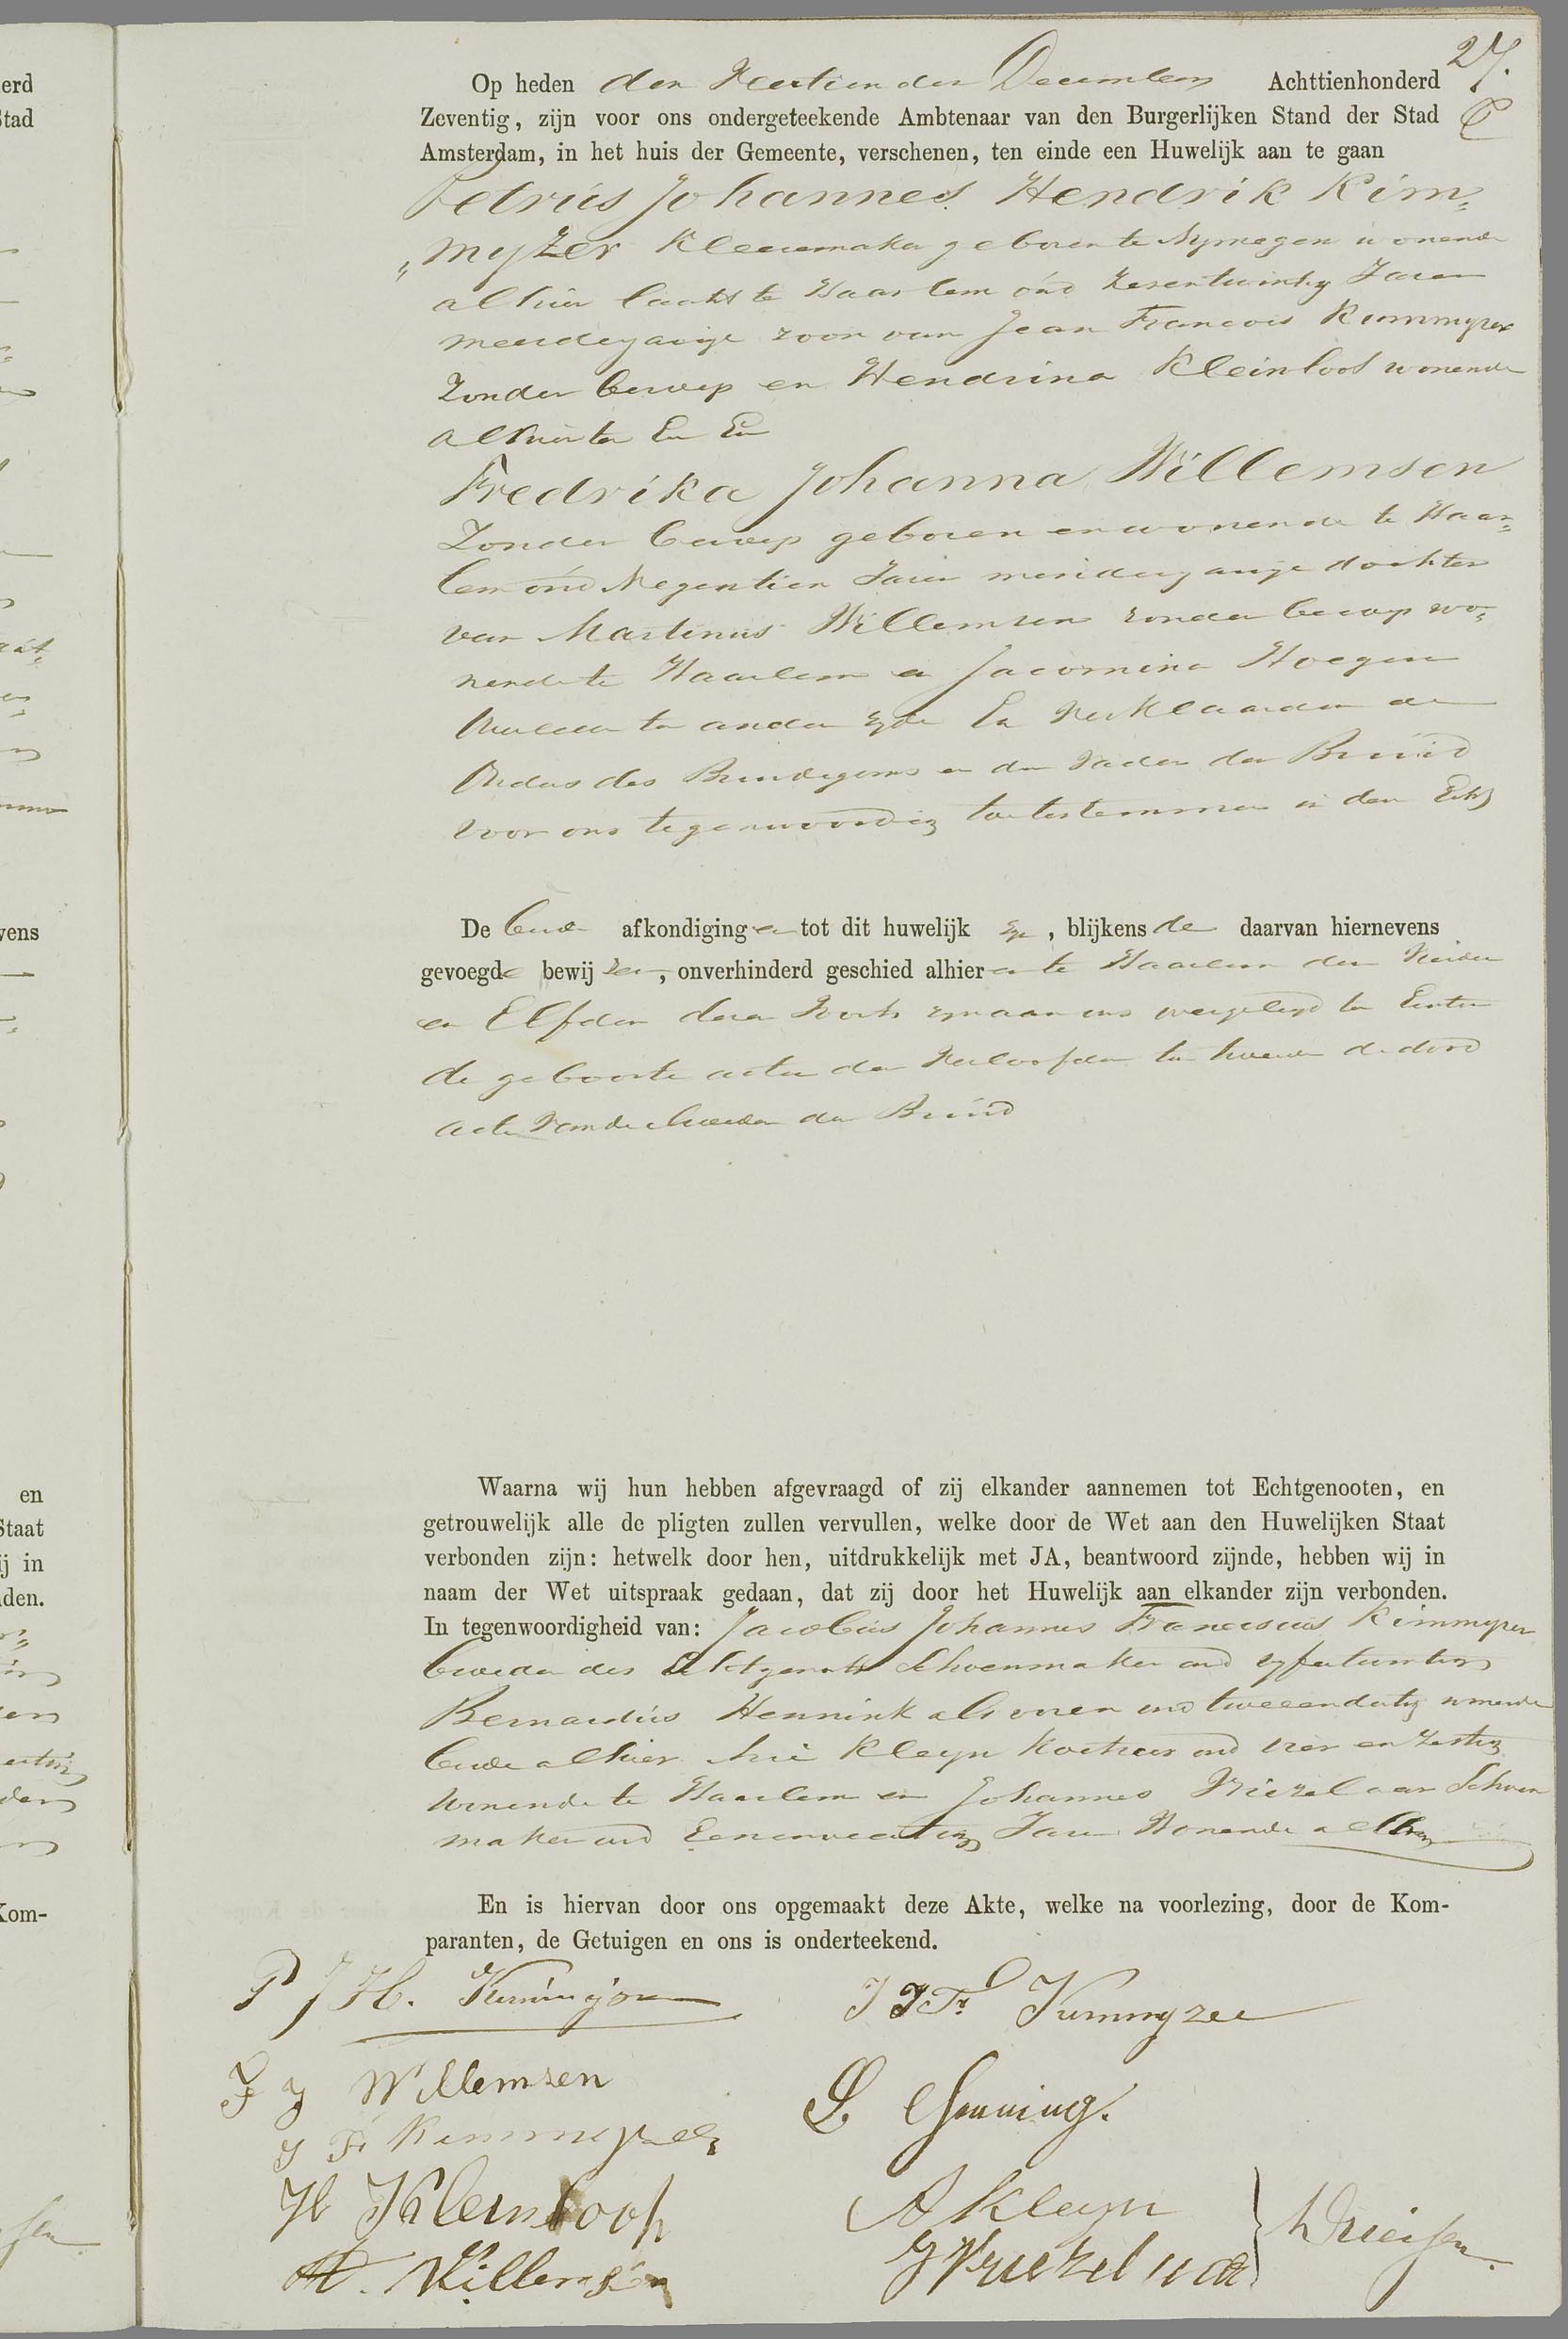 27.
Op heden den Veertienden December Achttienhonderd
Zeventig, zijn voor ons ondergeteekende Ambtenaar van den Burgerlijken Stand der Stad
Amsterdam, in het huis der Gemeente, verschenen, ten einde een Huwelijk aan te gaan
Petrus Johannes Hendrik Kim„
„myzer Kleermaker geboren te Nymegen wonende
alhier laatst te Haarlem oud Zesentwintig Jaren
meerderjarige zoon van Jean Francois Kimmyzer
Zonder beroep en Hendrina Kleinloof wonende
alhier ter En
Fredrika Johanna Willemsen
Zonder beroep geboren en wonende te Haar„
lem oud Negentien Jaren minderjarige dochter
van Martinus Willemsen zonder beroep wo„
nende te Haarlem en Jacomina Hoegen
ter andere zyde En Verklaarden de
Ouders des Bruidegoms en den Vader der Bruid
voor ons tegenwoordig toetestemmen in den Echt
De beide afkondigingen tot dit huwelijk zyn, blijkens de daarvan hiernevens
gevoegde bewijzen, onverhinderd geschied alhier en te Haarlem den Vierden
en Elfden dezer Voorts zyn aan ons overgelegd ten Eersten
de geboorte acten der Verloofden ten tweeden de dood
acte van de Moeder der Bruid
Waarna wij hun hebben afgevraagd of zij elkander aannemen tot Echtgenooten, en
getrouwelijk alle de pligten zullen vervullen, welke door de Wet aan den Huwelijken Staat
verbonden zijn: hetwelk door hen, uitdrukkelijk met JA, beantwoord zijnde, hebben wij in
naam der Wet uitspraak gedaan, dat zij door het Huwelijk aan elkander zijn verbonden.
In tegenwoordigheid van: Jacobus Johannes Franciscus Kimmyzer
broeder des Echtgenoots Schoenmaker oud vyfentwintig
Bernardus Hennink als voren oud tweeendertig wonende
beide alhier Kleyn Koetsier oud vier en zestig
wonende te Haarlem en Johannes Vriezelaar Schoen
maker oud Eenenveertig Jaren Wonende alhier
En is hiervan door ons opgemaakt deze Akte, welke na voorlezing, door de Kom-
paranten, de Getuigen en ons is onderteekend.
P J H. Kimmijzer
J J Fr Kimmyzer
F J Willemsen
B Henning.
J F Kimmyzer
H Kleinloof
A Kleyn
M. Willemsen
J Vriezelaar
Driessen.